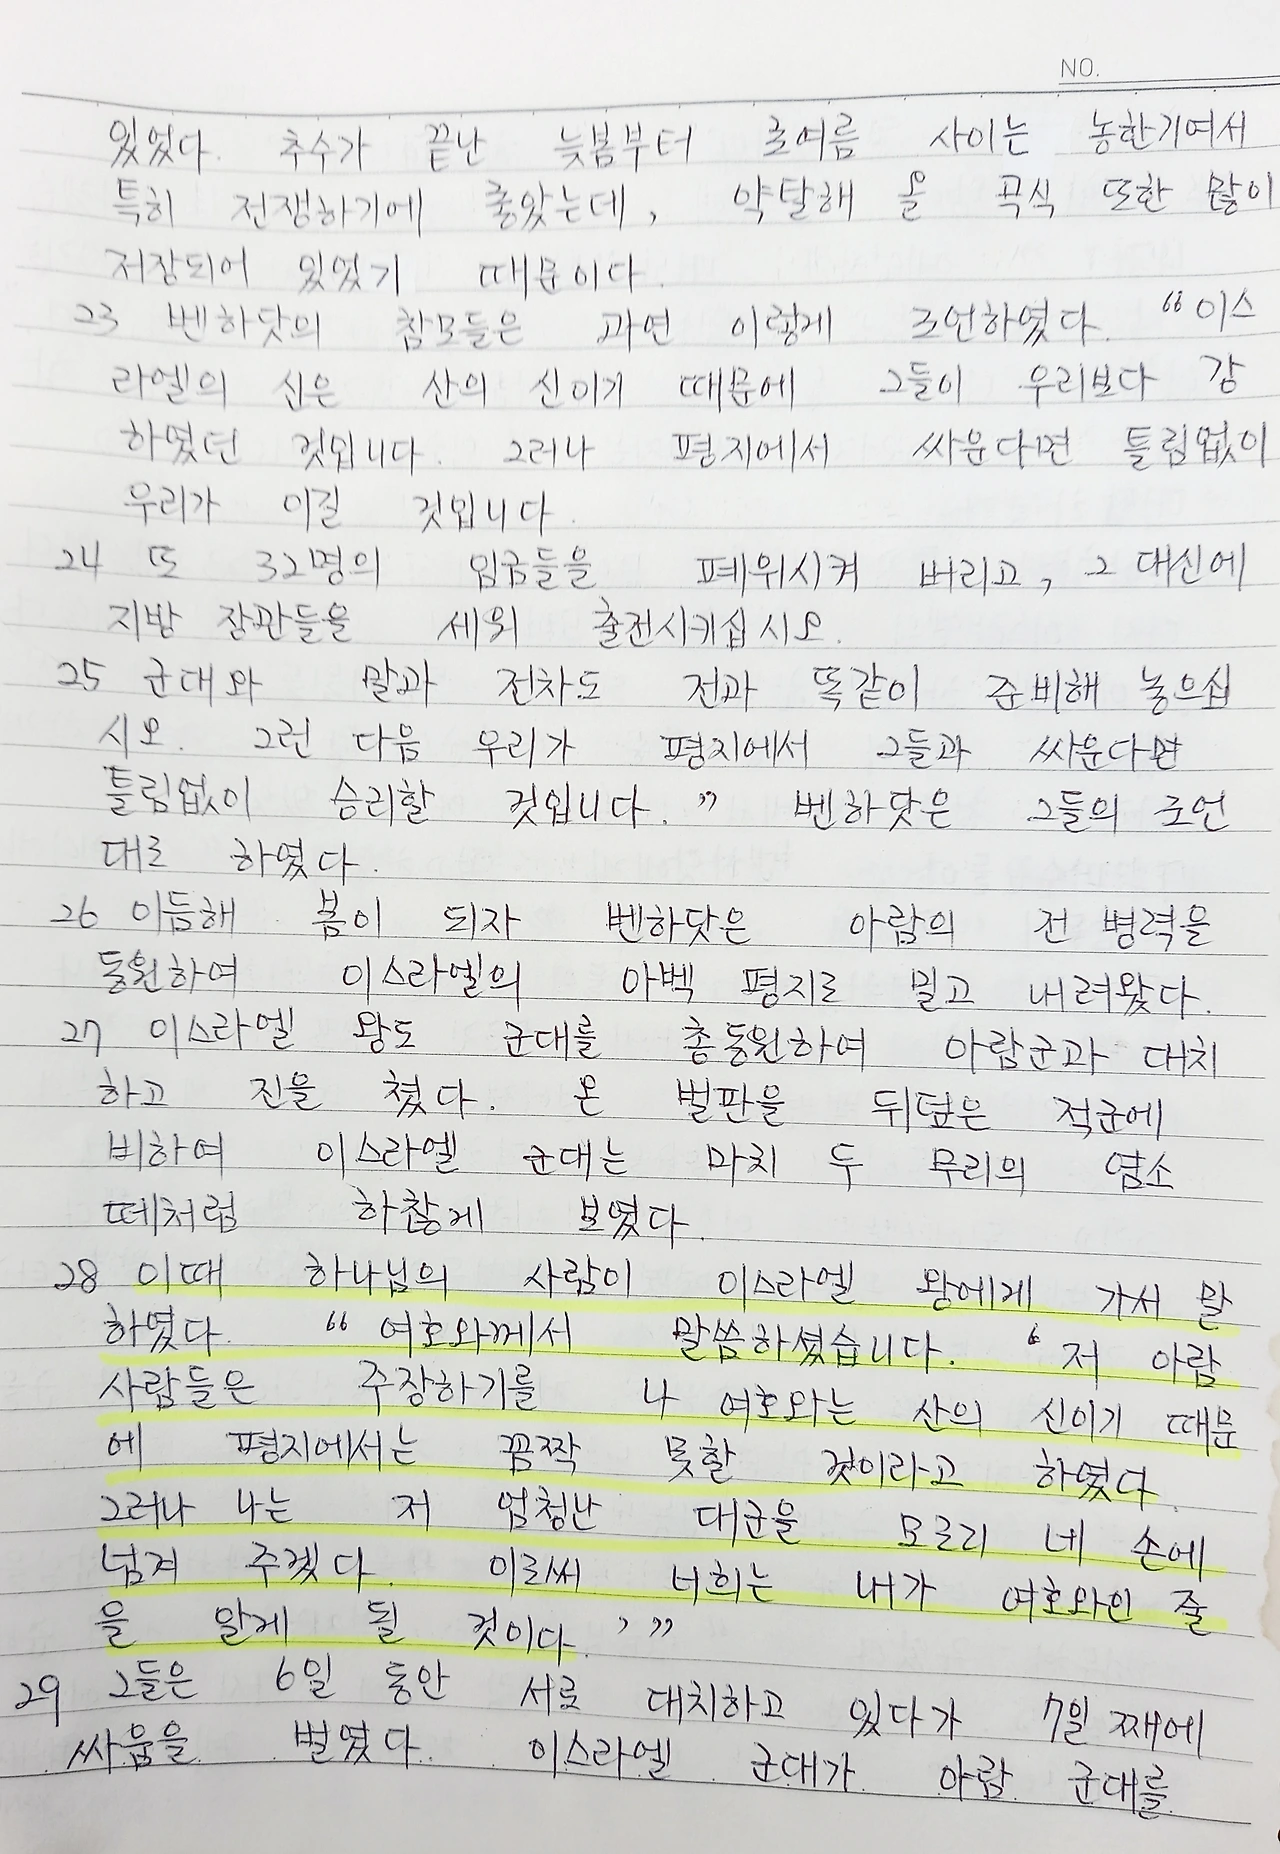 NO.
있었다. 추수가 끝난 늦봄부터 초여름 사이는 농한기여서
특히 전쟁하기에 좋았는데, 약탈해 올 곡식 또한 많이
저장되어 있었기 때문이다.
23 벤하닷의 참모들은 과연 이렇게 조언하였다. “이스
라엘의 신은 산의 신이기 때문에 그들이 우리보다 강
하였던 것입니다. 그러나 평지에서 싸운다면 틀림없이
우리가 이길 것입니다.
24 또 32명의 임금들을 폐위시켜 버리고, 그 대신에
지방 장관들을 세워 출전시키십시오.
25 군대와 말과 전차도 전과 똑같이 준비해 놓으십
시오. 그런 다음 우리가 평지에서 그들과 싸운다면
틀림없이 승리할 것입니다.” 벤하닷은 그들의 조언
대로 하였다.
26 이듬해 봄이 되자 벤하닷은 아람의 전 병력을
동원하여 이스라엘의 아벡 평지로 밀고 내려왔다.
27 이스라엘 왕도 군대를 총동원하여 아람군과 대치
하고 진을 쳤다. 온 벌판을 뒤덮은 적군에
비하여 이스라엘 군대는 마치 두 무리의 염소
떼처럼 하찮게 보였다.
28 이때 하나님의 사람이 이스라엘 왕에게 가서 말
하였다. “여호와께서 말씀하셨습니다. ‘저 아람
사람들은 주장하기를 나 여호와는 산의 신이기 때문
에 평지에서는 꼼짝 못할 것이라고 하였다.
그러나 나는 저 엄청난 대군을 모조리 네 손에
넘겨 주겠다. 이로써 너희는 내가 여호와인 줄
을 알게 될 것이다.’”
29 그들은 6일 동안 서로 대치하고 있다가 7일째에
싸움을 벌였다. 이스라엘 군대가 아람 군대를